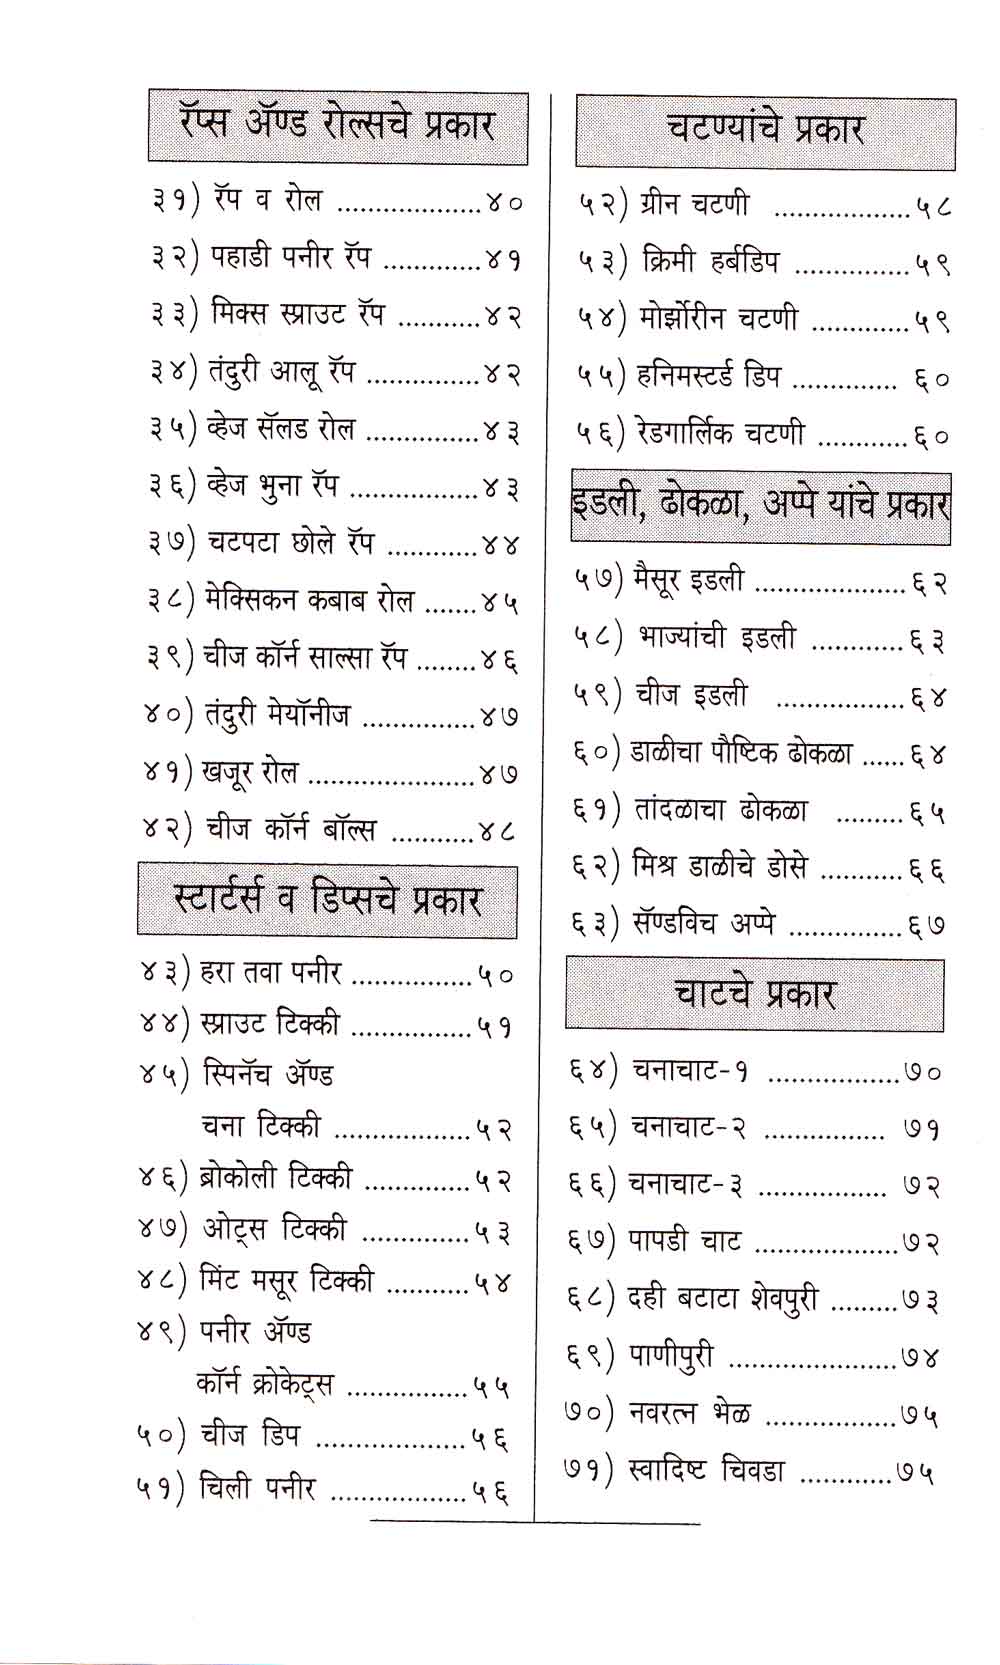 रॅप्स अ‍ॅण्ड रोल्सचे प्रकार
३१) रॅप व रोल ..................४०
३२) पहाडी पनीर रॅप ............४१
३३) मिक्स स्प्राउट रॅप ..........४२
३४) तंदुरी आलू रॅप ..............४२
३५) व्हेज सॅलड रोल ..............४३
३६) व्हेज भुना रॅप ................४३
३७) चटपटा छोले रॅप ...........४४
३८) मेक्सिकन कबाब रोल .......४५
३९) चीज कॉर्न साल्सा रॅप ........४६
४०) तंदुरी मेयॉनीज ..............४७
४१) खजूर रोल .....................४७
४२) चीज कॉर्न बॉल्स ..........४८
स्टार्टर्स व डिप्सचे प्रकार
४३) हरा तवा पनीर ...............५०
४४) स्प्राउट टिक्की ...............५१
४५) स्पिनॅच अ‍ॅण्ड
चना टिक्की .................५२
४६) ब्रोकोली टिक्की .............५२
४७) ओट्स टिक्की .............५३
४८) मिंट मसूर टिक्की ..........५४
४९) पनीर अ‍ॅण्ड
कॉर्न क्रोकेट्स ...............५५
५०) चीज डिप ...................५६
५१) चिली पनीर .................५६
चटण्यांचे प्रकार
५२) ग्रीन चटणी .................५८
५३) क्रिमी हर्बडिप ..............५९
५४) मोर्झोरीन चटणी ............५९
५५) हनिमस्टर्ड डिप ............. ६०
५६) रेडगार्लिक चटणी ...........६०
इडली, ढोकळा, अप्पे यांचे प्रकार
५७) मैसूर इडली ...................६२
५८) भाज्यांची इडली ...........६३
५९) चीज इडली ................६४
६०) डाळीचा पौष्टिक ढोकळा .....६४
६१) तांदळाचा ढोकळा .........६५
६२) मिश्र डाळीचे डोसे ..........६६
६३) सॅण्डविच अप्पे ..............६७
चाटचे प्रकार
६४) चनाचाट-१ .................७०
६५) चनाचाट-२ ............... ७१
६६) चनाचाट-३ ................ ७२
६७) पापडी चाट ..................७२
६८) दही बटाटा शेवपुरी .........७३
६९) पाणीपुरी .....................७४
७०) नवरत्न भेळ ................७५
७१) स्वादिष्ट चिवडा ............७५